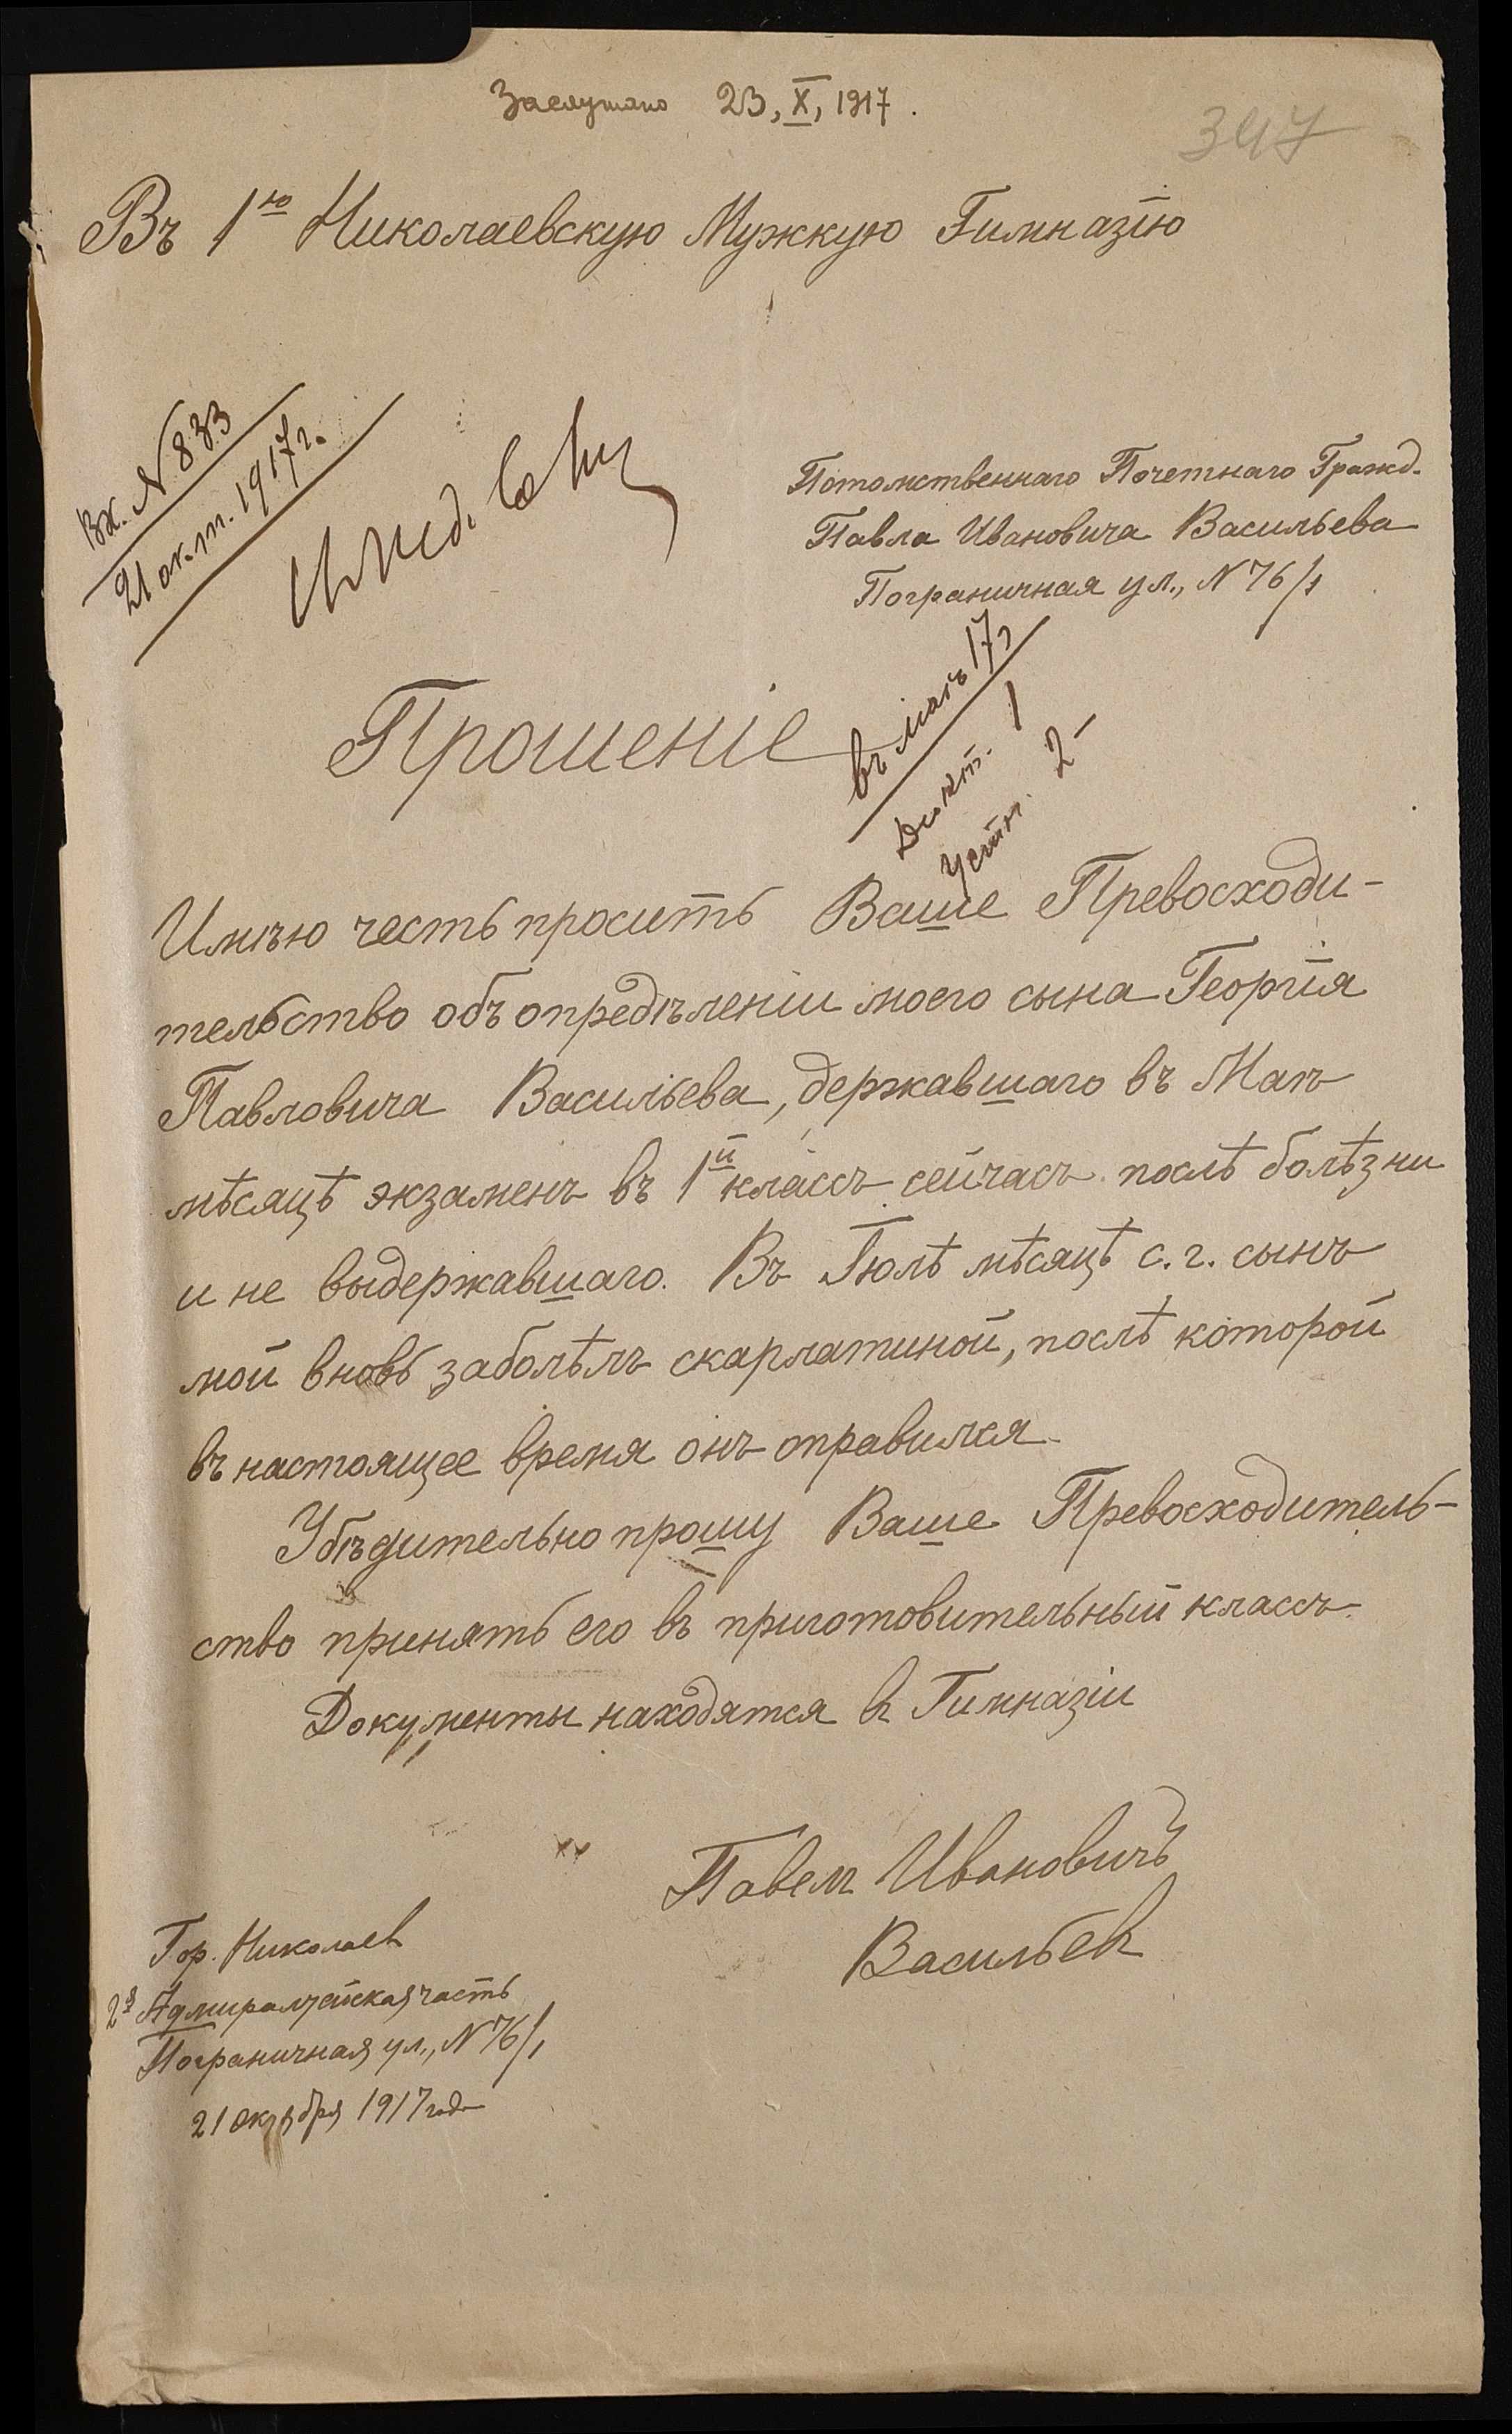 Заслушано 23, X, 1917.
347
Въ 1ю Николаевскую Мужкую Гимназію
Вх. N 833
21 окт. 1917 г.
Потомственнаго Почетнаго Гражд.
Павла Ивановича Васильева
Пограничная ул., N 76/1
Прошеніе
въ маѣ 17 г
Дикт. 1
Устн. 2-
Имѣю честь просить Ваше Превосходи-
тельство объ опредѣленіи моего сына Георгія
Павловича Васильева, державшаго въ Маѣ
мѣсяцѣ экзаменъ въ 1й классъ сейчасъ послѣ болѣзни
и не выдержавшаго. Въ Іюлѣ мѣсяцѣ с. г. сынъ
мой вновь заболѣлъ скарлатиной, послѣ которой
въ настоящее время онъ оправился.
Убѣдительно прошу Ваше Превосходитель-
ство принять его въ приготовительный классъ.
Документы находятся въ Гимназіи
Павелъ Ивановичъ
Васильевъ
Гор. Николаев
2я Адмиралтейская часть
Пограничная ул., N 76/1
21 октября 1917 года